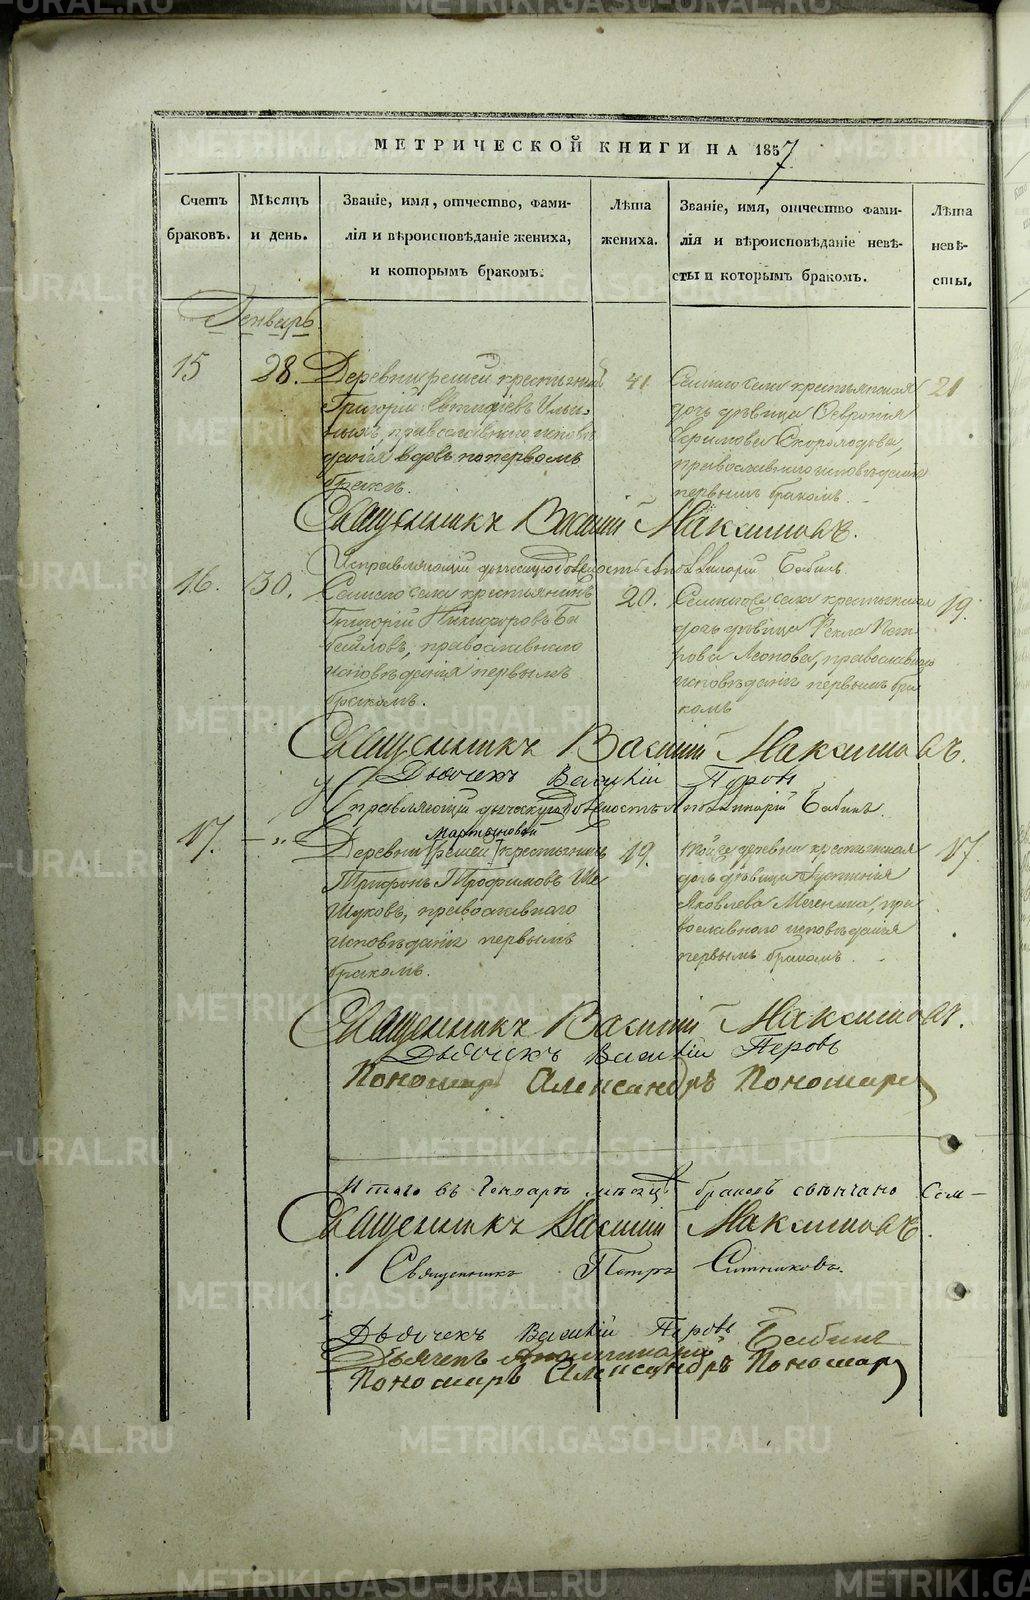 МЕТРИЧЕСКОЙ КНИГИ НА 1857
Счетъ браковъ.
Мѣсяцъ и день.
Званіе, имя, отчество, фами-
лія и вѣроисповѣданіе жениха,
и которымъ бракомъ.
Лѣта жениха.
Званіе, имя, отчество фами-
лія и вѣроисповѣданіе невѣ-
сты и которымъ бракомъ.
Лѣта
невѣ-
сты.
Генварь
15
28.
Деревни крестьянинъ
Григорій Ильи-
ныхъ, православнаго исповѣ
данія вдовъ по первомъ
бракѣ.
41
крестьянская
дочь дѣвица Февронія
Скороходова,
православнаго исповѣданія
первымъ бракомъ.
21
Священникъ Василій Максимовъ.
Исправляющій дьяческую должность Бабинъ.
16.
30.
села крестьянинъ
Григорій Никифоровъ Ба
православнаго
исповѣданія первымъ
бракомъ.
20.
села крестьянская
дочь дѣвица Фекла Пет
рова православнаго
исповѣданія первымъ бра
комъ
19.
Священникъ Василій Максимовъ.
Дьячекъ Василій Перовъ
Исправляющій дьяческую должность Бабинъ.
17.
— „
Мартьяновой
Деревни крестьянинъ
Трифонъ Трофимовъ Ше
шуковъ, православнаго
исповѣданія первымъ
бракомъ.
19.
Той же деревни крестьянская
дочь дѣвица Устинія
Яковлева пра
вославнаго исповѣданія
первымъ бракомъ.
17.
Священникъ Василій Максимовъ.
Дьячекъ Василій Перовъ
Пономарь Александръ Пономарев
Итого въ Генварѣ мѣсяцѣ браковъ свѣнчано Сем-
Священникъ Василій Максимовъ.
Священникъ Петръ Ситниковъ.
Дьячекъ Василій Перовъ
Дьячекъ Бабинъ
Пономарь Александръ Пономарев
METRIKI.GASO-URAL.RU